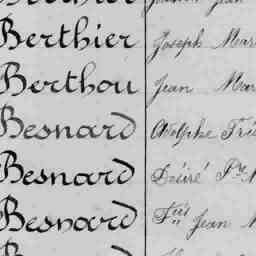 Berthier Joseph Mar
Berthou Jean Mar
Besnard Adolphe
Besnard Désiré
Besnard Jean